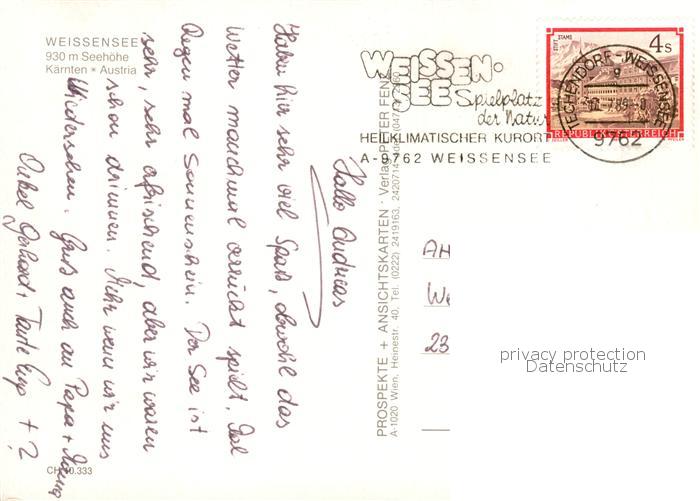 WEISSENSEE
930 m Seehöhe
Kärnten * Austria
Hallo Andreas
Haben hier sehr viel Spaß, obwohl das
Wetter manchmal verrückt spielt. Mal
Regen mal Sonnenschein. Der See ist
sehr, sehr erfrischend, aber wir waren
schon drinnen. Mehr wenn wir uns
Wiedersehen. Gruß auch an Papa + Mama
Onkel Gerhard + Tante + ?
CH 10.333
PROSPEKTE + ANSICHTSKARTEN · Verlag PETER FENZ
A-1020 Wien, Heinestr. 40, Tel. (0222) 2419163, 2420714
WEISSEN-
SEE Spielplatz
der Natur
HEILKLIMATISCHER KURORT
A-9762 WEISSENSEE
STIFT STAMS
4 S
REPUBLIK ÖSTERREICH
TECHENDORF-WEISSENSEE
9762
AH
We
23
privacy protection
Datenschutz